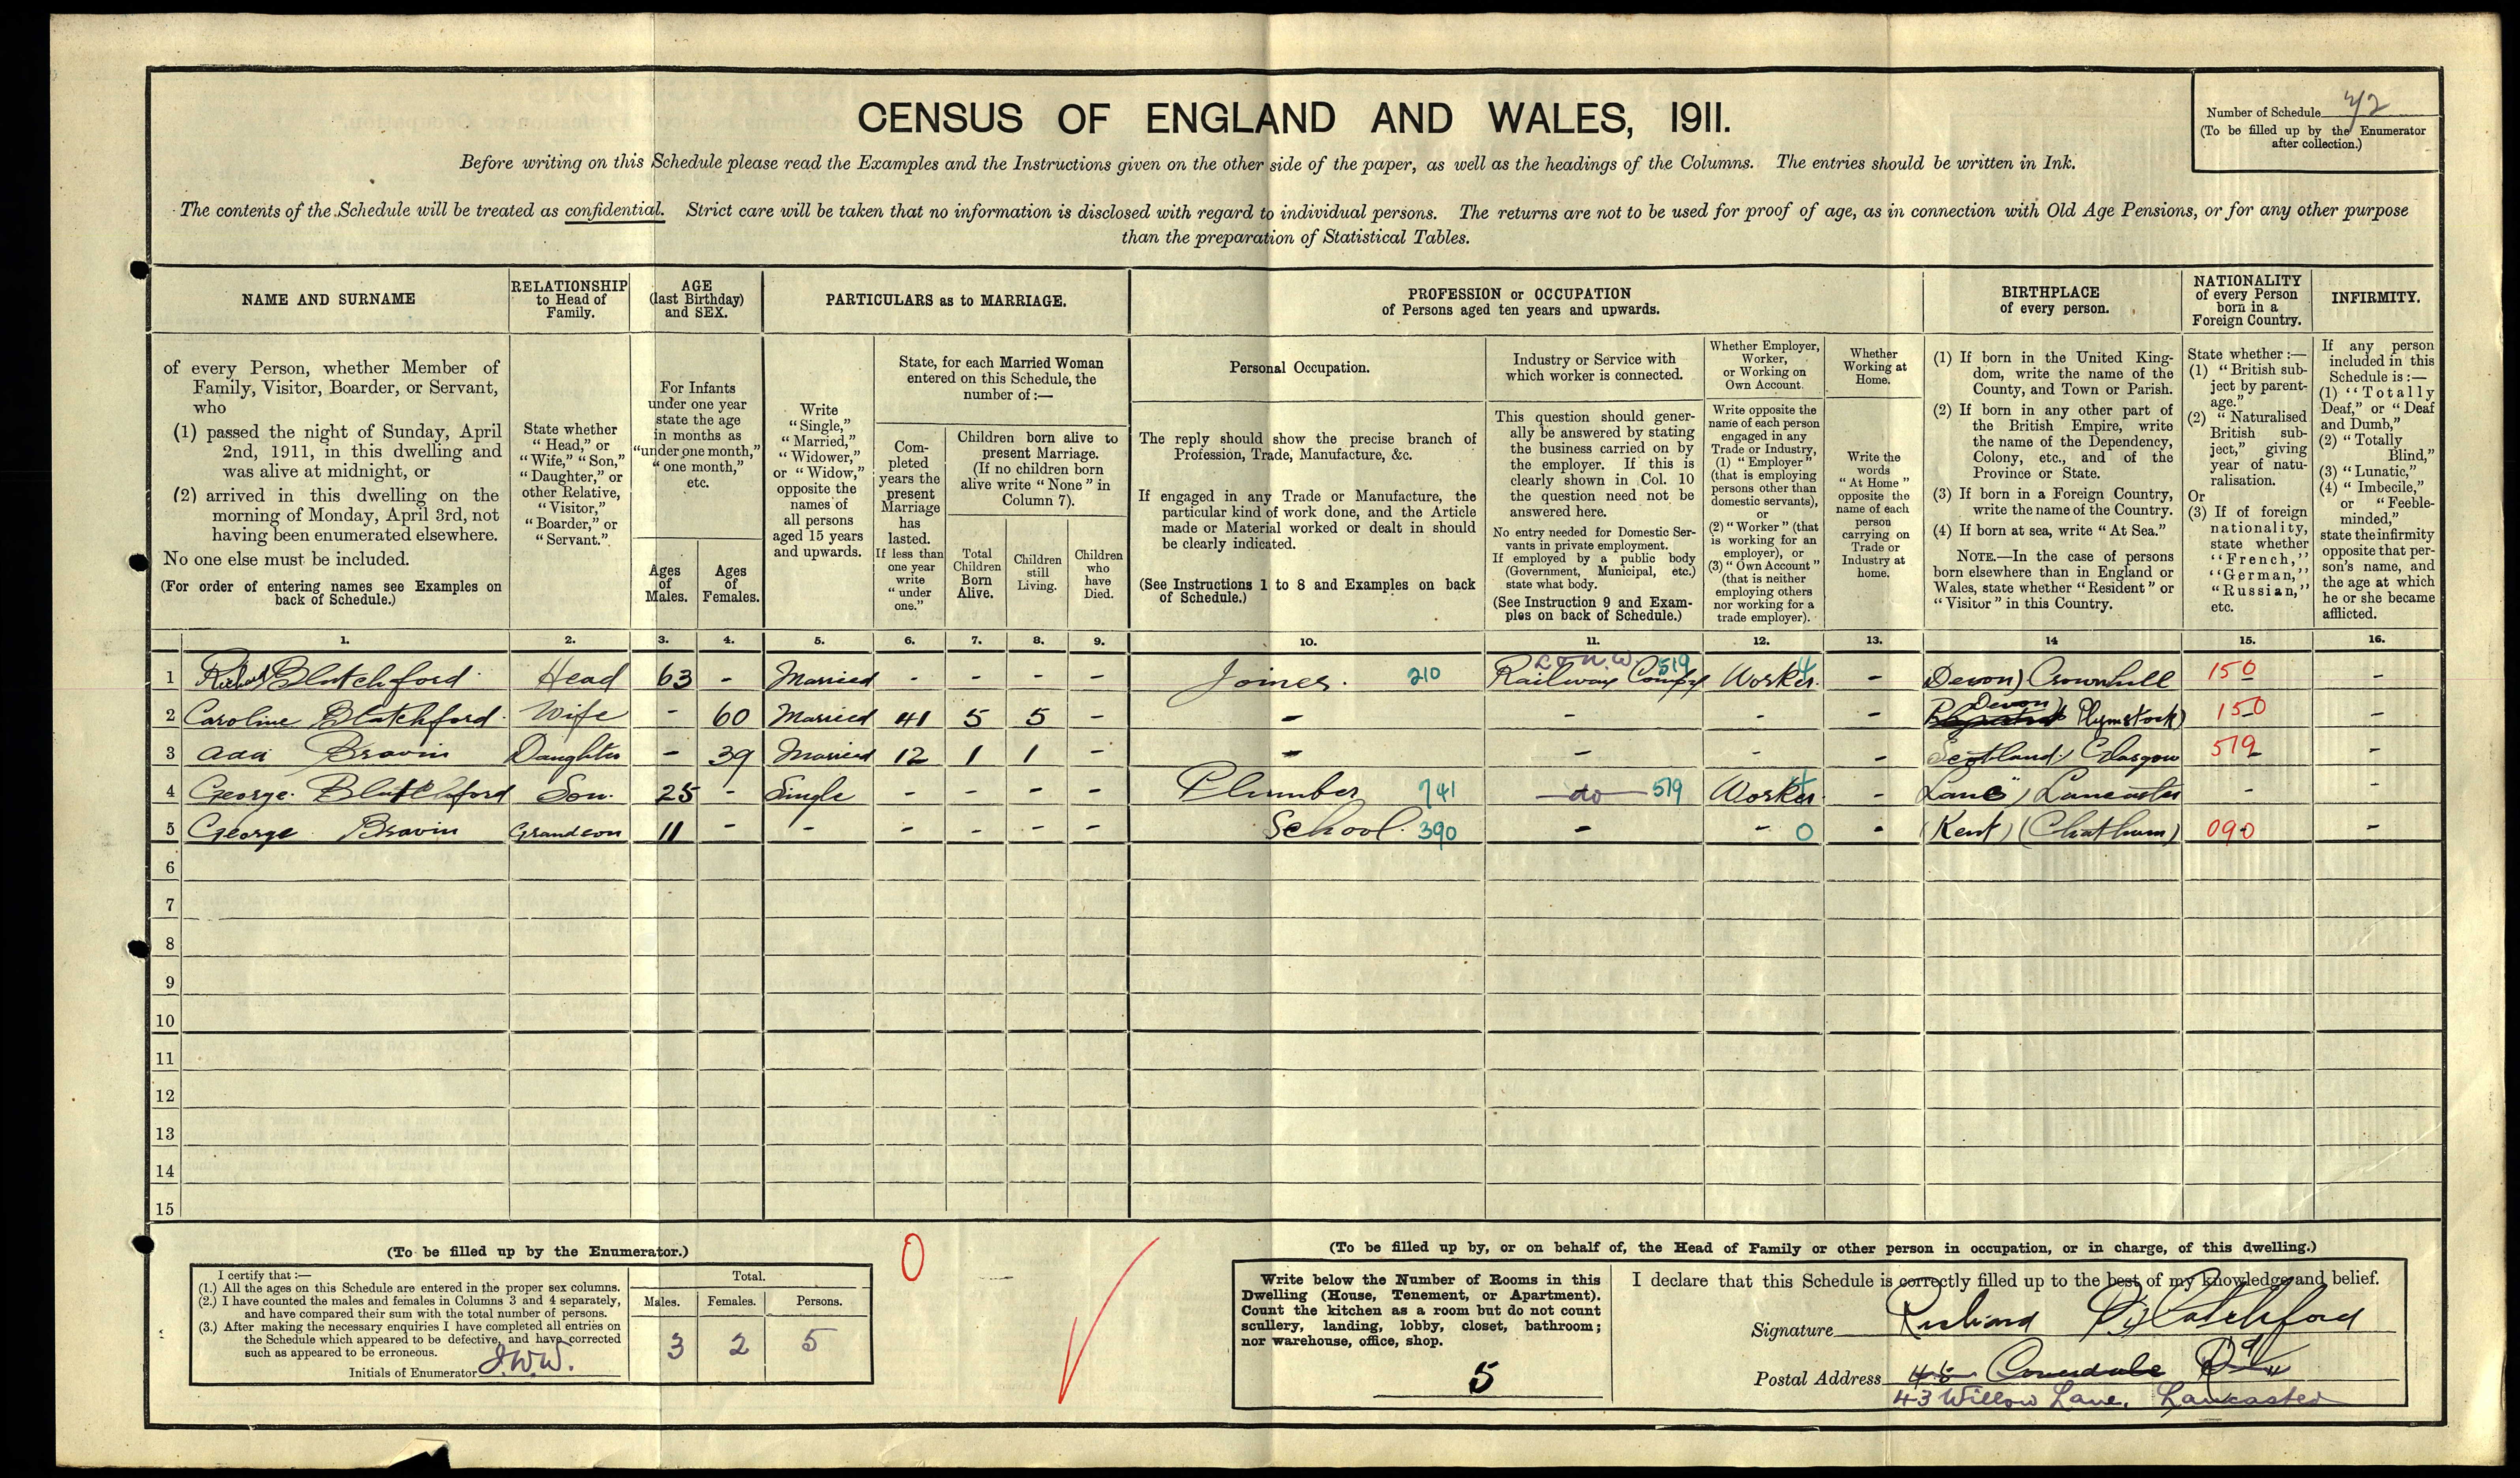 CENSUS OF ENGLAND AND WALES, 1911.
Number of Schedule 42
(To be filled up by the Enumerator
after collection.)
Before writing on this Schedule please read the Examples and the Instructions given on the other side of the paper, as well as the headings of the Columns. The entries should be written in Ink.
The contents of the Schedule will be treated as confidential. Strict care will be taken that no information is disclosed with regard to individual persons. The returns are not to be used for proof of age, as in connection with Old Age Pensions, or for any other purpose
than the preparation of Statistical Tables.
NAME AND SURNAME
of every Person, whether Member of
Family, Visitor, Boarder, or Servant,
who
(1) passed the night of Sunday, April
2nd, 1911, in this dwelling and
was alive at midnight, or
(2) arrived in this dwelling on the
morning of Monday, April 3rd, not
having been enumerated elsewhere.
No one else must be included.
(For order of entering names see Examples on
back of Schedule.)
RELATIONSHIP
to Head of
Family.
State whether
"Head," or
"Wife," "Son,"
"Daughter," or
other Relative,
"Visitor,"
"Boarder," or
"Servant."
AGE
(last Birthday)
and SEX.
For Infants
under one year
state the age
in months as
"under one month,"
"one month,"
etc.
Ages
of
Males.
Ages
of
Females.
PARTICULARS as to MARRIAGE.
Write
"Single,"
"Married,"
"Widower,"
or "Widow,"
opposite the
names of
all persons
aged 15 years
and upwards.
State, for each Married Woman
entered on this Schedule, the
number of :—
Com-
pleted
years the
present
Marriage
has
lasted.
If less than
one year
write
"under
one."
Children born alive to
present Marriage.
(If no children born
alive write "None" in
Column 7).
Total
Children
Born
Alive.
Children
still
Living.
Children
who
have
Died.
PROFESSION or OCCUPATION
of Persons aged ten years and upwards.
Personal Occupation.
The reply should show the precise branch of
Profession, Trade, Manufacture, &c.
If engaged in any Trade or Manufacture, the
particular kind of work done, and the Article
made or Material worked or dealt in should
be clearly indicated.
(See Instructions 1 to 8 and Examples on back
of Schedule.)
Industry or Service with
which worker is connected.
This question should gener-
ally be answered by stating
the business carried on by
the employer. If this is
clearly shown in Col. 10
the question need not be
answered here.
No entry needed for Domestic Ser-
vants in private employment.
If employed by a public body
(Government, Municipal, etc.)
state what body.
(See Instruction 9 and Exam-
ples on back of Schedule.)
Whether Employer,
Worker,
or Working on
Own Account.
Write opposite the
name of each person
engaged in any
Trade or Industry,
(1) "Employer"
(that is employing
persons other than
domestic servants),
or
(2) "Worker" (that
is working for an
employer), or
(3) "Own Account"
(that is neither
employing others
nor working for a
trade employer).
Whether
Working at
Home.
Write the
words
"At Home"
opposite the
name of each
person
carrying on
Trade or
Industry at
home.
BIRTHPLACE
of every person.
(1) If born in the United King-
dom, write the name of the
County, and Town or Parish.
(2) If born in any other part of
the British Empire, write
the name of the Dependency,
Colony, etc., and of the
Province or State.
(3) If born in a Foreign Country,
write the name of the Country.
(4) If born at sea, write "At Sea."
NOTE.—In the case of persons
born elsewhere than in England or
Wales, state whether "Resident" or
"Visitor" in this Country.
NATIONALITY
of every Person
born in a
Foreign Country.
State whether :—
(1) "British sub-
ject by parent-
age."
(2) "Naturalised
British sub-
ject," giving
year of natu-
ralisation.
Or
(3) If of foreign
nationality,
state whether
"French,"
"German,"
"Russian,"
etc.
INFIRMITY.
If any person
included in this
Schedule is :—
(1) "Totally
Deaf," or "Deaf
and Dumb,"
(2) "Totally
Blind,"
(3) "Lunatic,"
(4) "Imbecile,"
or "Feeble-
minded,"
state the infirmity
opposite that per-
son's name, and
the age at which
he or she became
afflicted.
1. 2. 3. 4. 5. 6. 7. 8. 9. 10. 11. 12. 13. 14 15. 16.
L & N. W. 519
1 Richard Blatchford Head 63 - Married - - - - Joiner. 210 Railway Compy Worker. 4 - Devon) Crownhill 150 -
2 Caroline Blatchford Wife - 60 Married 41 5 5 - - - - - Devon) Plymstock) 150 -
3 Ada Bravin Daughter - 39 Married 12 1 1 - - - - - Scotland) Glasgow 519 -
4 George Blatchford Son. 25 - Single - - - - Plumber 741 do 519 Worker. 4 - Lanc) Lancaster - -
5 George Bravin Grandson 11 - - - - - - School. 390 - - 0 - (Kent) (Chatham) 090 -
6
7
8
9
10
11
12
13
14
15
(To be filled up by the Enumerator.)
I certify that :—
(1.) All the ages on this Schedule are entered in the proper sex columns.
(2.) I have counted the males and females in Columns 3 and 4 separately,
and have compared their sum with the total number of persons.
(3.) After making the necessary enquiries I have completed all entries on
the Schedule which appeared to be defective, and have corrected
such as appeared to be erroneous.
Initials of Enumerator J.W.W.
Total.
Males. Females. Persons.
3 2 5
0
(To be filled up by, or on behalf of, the Head of Family or other person in occupation, or in charge, of this dwelling.)
Write below the Number of Rooms in this
Dwelling (House, Tenement, or Apartment).
Count the kitchen as a room but do not count
scullery, landing, lobby, closet, bathroom;
nor warehouse, office, shop.
5
I declare that this Schedule is correctly filled up to the best of my knowledge and belief.
Signature Richard Blatchford
Postal Address
43 Willow Lane, Lancaster